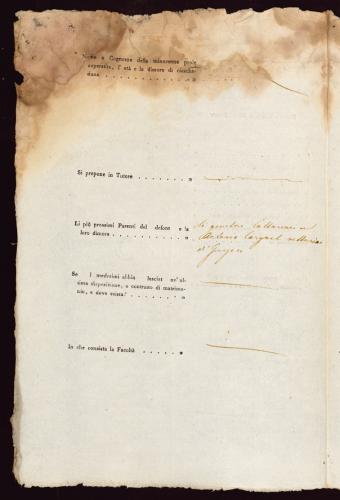 Nome e Cognome della minorenne prole
superstite, l' età e la dimora di ciasche-
duno . . . . . . . . . . . . »
Si propone in Tutore . . . . . . . . »
Li più prossimi Parenti del defonto e la
loro dimora . . . . . . . . . . . »
Li genitori Cattarina e
Antonio
di
Se i medesimi abbia lasciat un' ul-
tima disposizione, o contratto di matrimo-
nio, e dove esista? . . . . . . . »
In che consista la Facoltà . . . . . . »